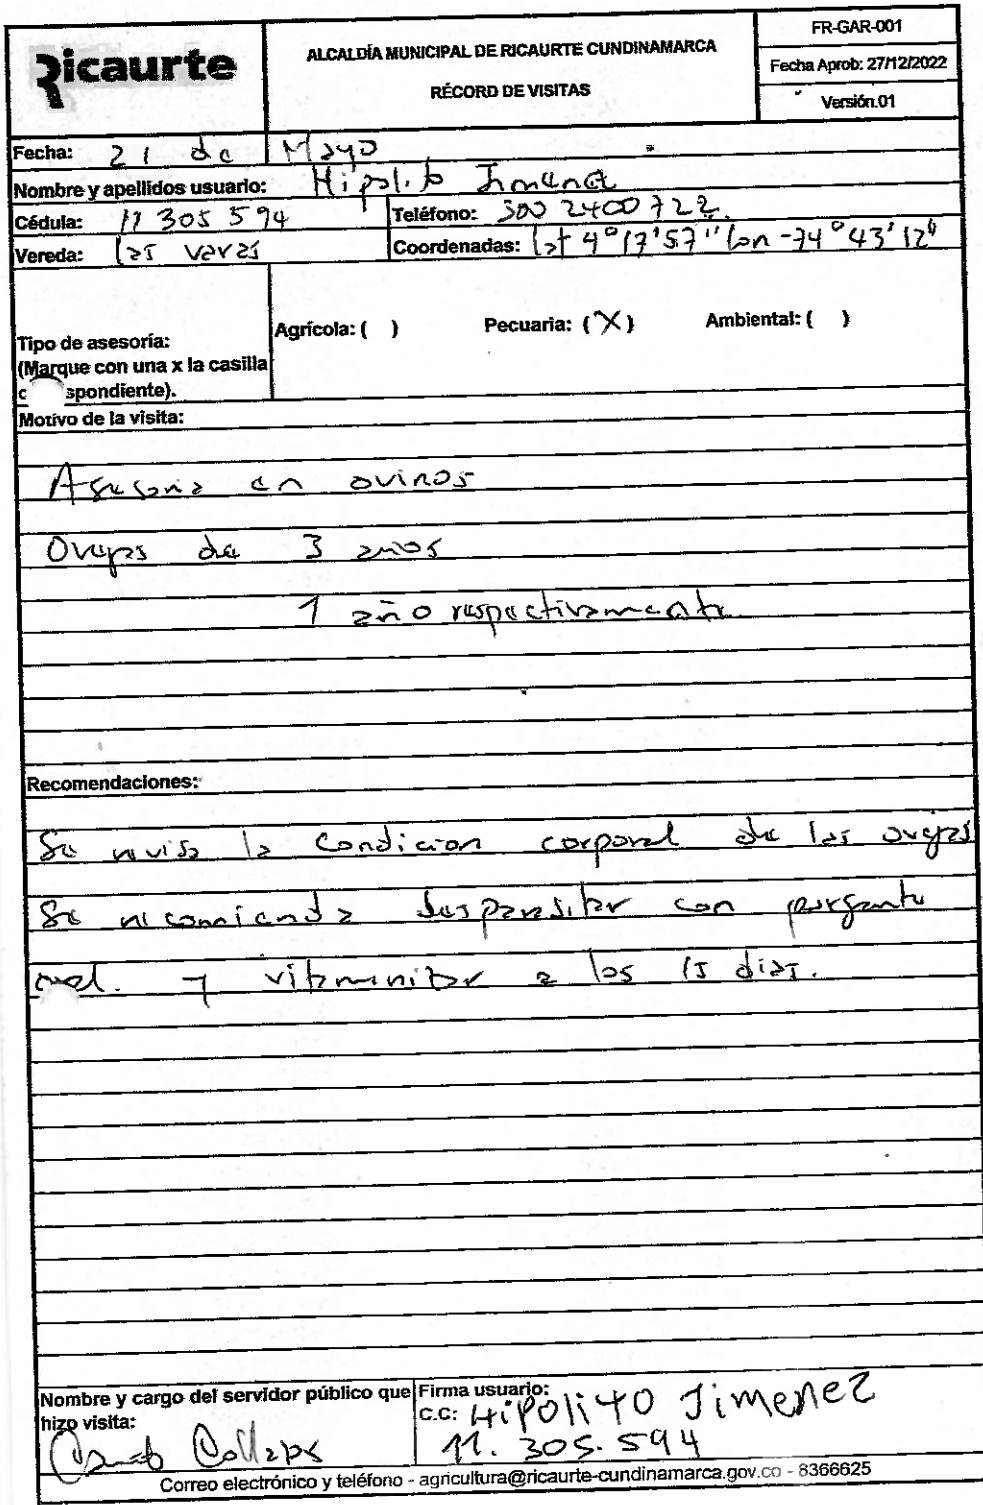 Ricaurte
ALCALDÍA MUNICIPAL DE RICAURTE CUNDINAMARCA
RÉCORD DE VISITAS
FR-GAR-001
Fecha Aprob: 27/12/2022
Versión.01
Fecha: 21 de Mayo
Nombre y apellidos usuario: Hipolito Jimenez
Cédula: 11 305 594 Teléfono: 300 2400722.
Vereda: las varas Coordenadas: lat 4°17'57" lon -74°43'12"
Tipo de asesoría:
(Marque con una x la casilla
spondiente).
Agrícola: ( ) Pecuaria: (X) Ambiental: ( )
Motivo de la visita:
Asesoria en ovinos
Ovejas de 3 años
1 año respectivamente
Recomendaciones:
Se revisa la condicion corporal de las ovejas
Se recomienda desparasitar con purgante
oral. y vitaminizar a los 15 dias.
Nombre y cargo del servidor público que
hizo visita:
Firma usuario:
C.C: Hipolito Jimenez
11. 305. 594
Correo electrónico y teléfono - agricultura@ricaurte-cundinamarca.gov.co - 8366625